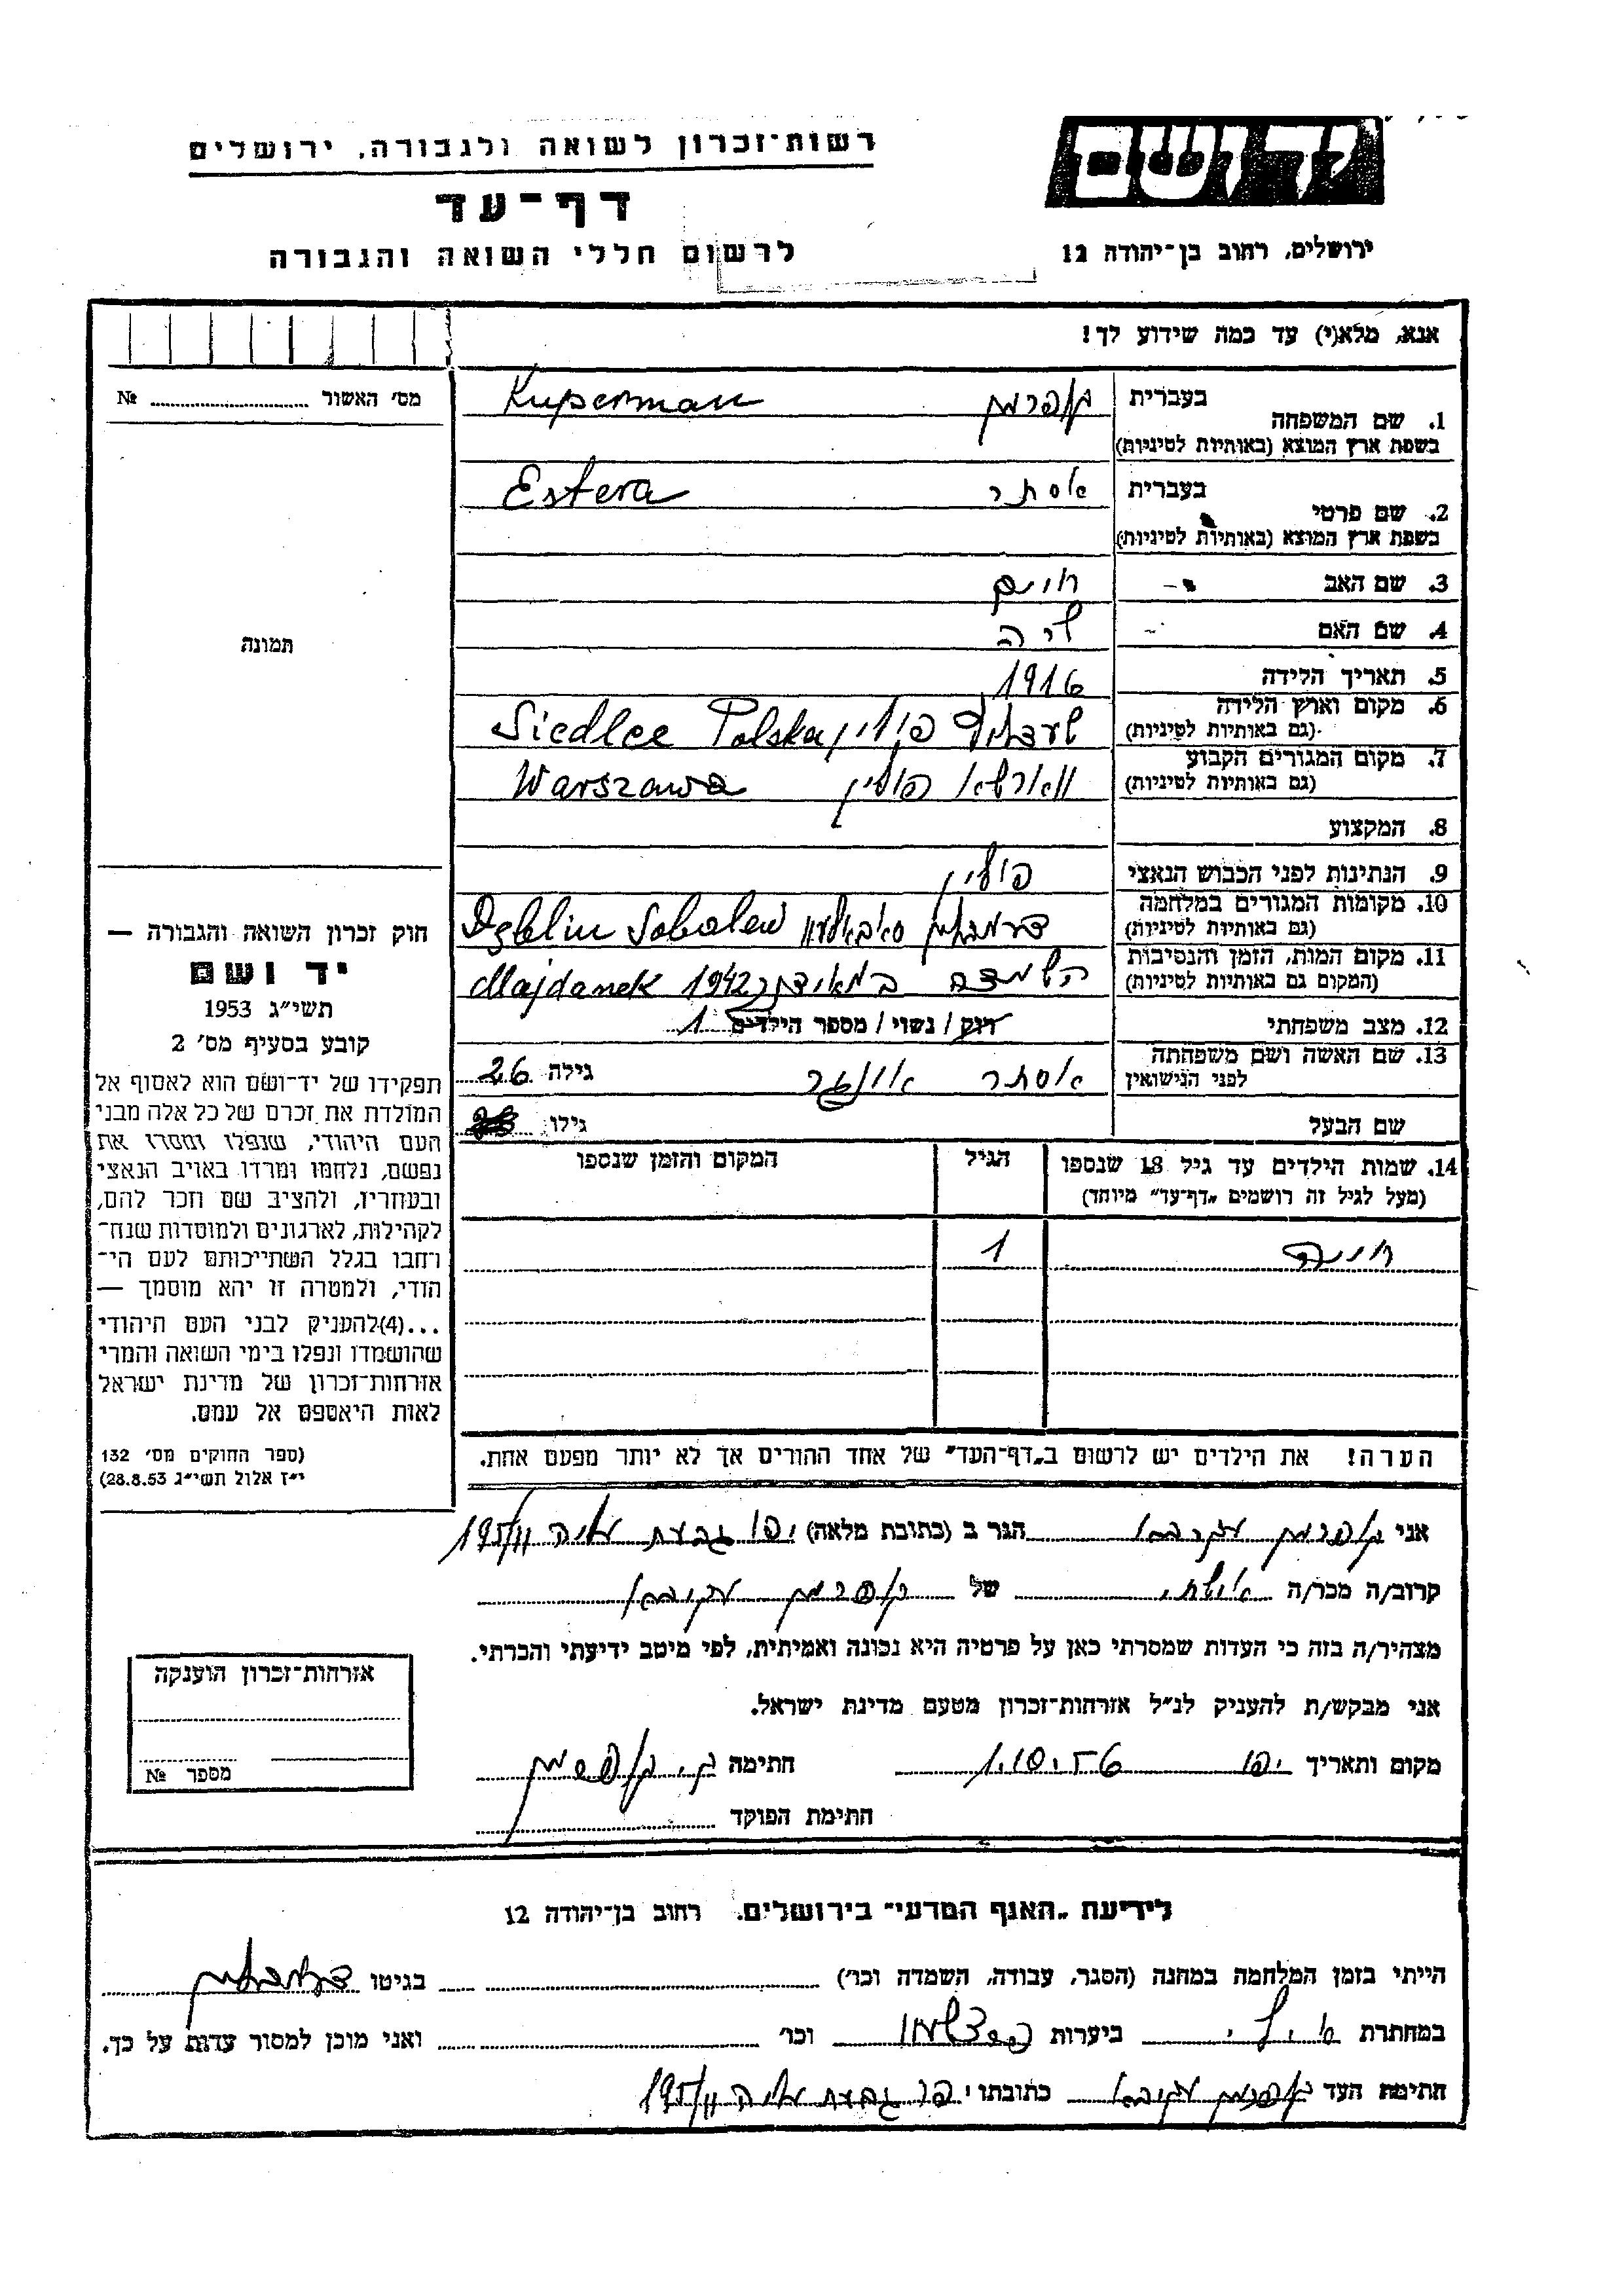 יד ושם
ירושלים, רחוב בן־יהודה 12
רשות־זכרון לשואה ולגבורה, ירושלים
דף־עד
לרשום חללי השואה והגבורה
אנא, מלא(י) עד כמה שידוע לך!
מס' האשור № 
תמונה
1. שם המשפחה בעברית קופרמן Kuperman
בשפת ארץ המוצא (באותיות לטיניות)
2. שם פרטי בעברית אסתר Estera
בשפת ארץ המוצא (באותיות לטיניות)
3. שם האב חיים
4. שם האם לי ה
5. תאריך הלידה 1916
6. מקום וארץ הלידה פולין Siedlce Polska
(גם באותיות לטיניות)
7. מקום המגורים הקבוע ווארשא פולין Warszawa
(גם באותיות לטיניות)
8. המקצוע
9. הנתינות לפני הכבוש הנאצי פולין
10. מקומות המגורים במלחמה Dęblin Sobolew
(גם באותיות לטיניות)
11. מקום המות, הזמן והנסיבות 1942 Majdanek
(המקום גם באותיות לטיניות)
12. מצב משפחתי רווק / נשוי / מספר הילדים 1
13. שם האשה ושם משפחתה אסתר גילה 26
לפני הנישואין
שם הבעל גילו
14. שמות הילדים עד גיל 18 שנספו הגיל המקום והזמן שנספו
(מעל לגיל זה רושמים „דף־עד" מיוחד)
1
הערה! את הילדים יש לרשום ב„דף־העד" של אחד ההורים אך לא יותר מפעם אחת.
חוק זכרון השואה והגבורה —
יד ושם
תשי"ג 1953
קובע בסעיף מס' 2
תפקידו של יד־ושם הוא לאסוף אל
המולדת את זכרם של כל אלה מבני
העם היהודי, שנפלו ומסרו את
נפשם, נלחמו ומרדו באויב הנאצי
ובעוזריו, ולהציב שם וזכר להם,
לקהילות, לארגונים ולמוסדות שנח־
רחבו בגלל השתייכותם לעם הי־
הודי, ולמטרה זו יהא מוסמך —
...(4)להעניק לבני העם היהודי
שהושמדו ונפלו בימי השואה והמרי
אזרחות־זכרון של מדינת ישראל
לאות היאספם אל עמם.
(ספר החוקים מס' 132
י"ז אלול תשי"ג 28.8.53)
אני קופרמן יעקב הגר ב (כתובת מלאה) יפו גבעת עליה 195/11
קרוב/ה מכר/ה אשתי של קופרמן יעקב
מצהיר/ה בזה כי העדות שמסרתי כאן על פרטיה היא נכונה ואמיתית, לפי מיטב ידיעתי והכרתי.
אני מבקש/ת להעניק לנ"ל אזרחות־זכרון מטעם מדינת ישראל.
מקום ותאריך יפו חתימה י. קופרמן
חתימת הפוקד
אזרחות־זכרון הוענקה
מספר №
לידיעת „האגף המדעי" בירושלים. רחוב בן־יהודה 12
הייתי בזמן המלחמה במחנה (הסגר, עבודה, השמדה וכו') בגיטו
במחתרת ביערות וכו' ואני מוכן למסור עדות על כך.
חתימת העד קופרמן יעקב כתובתו יפו גבעת עליה 195/11